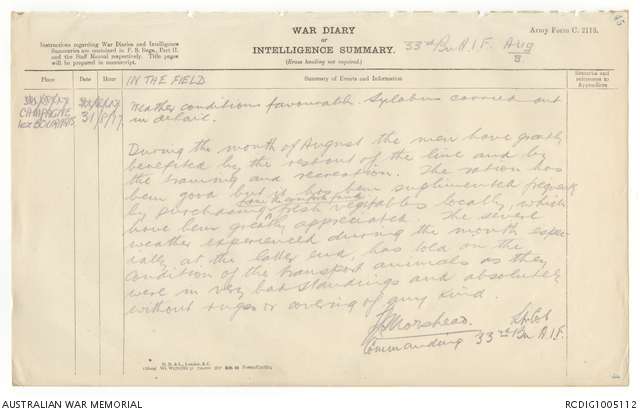 45
WAR DIARY
or
INTELLIGENCE SUMMARY.
(Erase heading not required.)
Army Form C. 2118.
Instructions regarding War Diaries and Intelligence
Summaries are contained in F. S. Regs., Part II.
and the Staff Manual respectively. Title pages
will be prepared in manuscript.
33rd Bn A.I.F. Aug
8
Place
Date
Hour
IN THE FIELD
Summary of Events and Information
Remarks and
references to
Appendices
CAMPAGNE
les BOURAINS
31/8/17
Weather conditions favourable. Sylabus carried out
in detail.
During the month of August the men have greatly
benefited by the rest out of the line and by
the training and recreation. The ration has
been good but it has been suplimented
from the canteen fund
by purchasing fresh vegitables locally, which
have been greatly appreciated. The severe
weather experienced during the month espec-
ially at the latter end, has told on the
condition of the transport animals as they
were in very bad standings and absolutely
without rugs or covering of any kind.
Morshead. Lt Col
Commanding 33rd Bn A.I.F.
AUSTRALIAN WAR MEMORIAL
RCDIG1005112